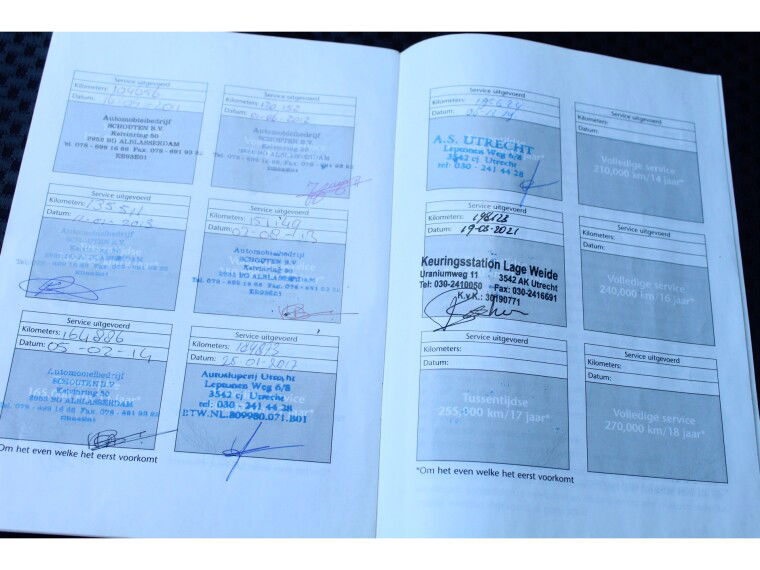 Service uitgevoerd
Kilometers: 104056
Datum:
Automobielbedrijf
SCHOUTEN B.V.
Kelvinring 50
2952 BG ALBLASSERDAM
Tel. 078 - 699 16 86 Fax. 078 - 691 92 82
Service uitgevoerd
Kilometers: 120 152
Datum: 01-06-2012
Automobielbedrijf
SCHOUTEN B.V.
Kelvinring 50
2952 BG ALBLASSERDAM
Service uitgevoerd
Kilometers: 135511
Datum: 11-02-2013
Automobielbedrijf
SCHOUTEN B.V.
Kelvinring 50
2952 BG ALBLASSERDAM
Service uitgevoerd
Kilometers:
Datum: 02-08-13
Automobielbedrijf
SCHOUTEN B.V.
Kelvinring 50
2952 BG ALBLASSERDAM
Service uitgevoerd
Kilometers: 164886
Datum: 05-02-14
Automobielbedrijf
SCHOUTEN B.V.
Kelvinring 50
2952 BG ALBLASSERDAM
Service uitgevoerd
Kilometers:
Datum: 25-01-2017
Autosloperij Utrecht
Leptonen Weg 6/8
3542 cj Utrecht
tel: 030 - 241 44 28
BTW.NL.809980.071.B01
Om het even welke het eerst voorkomt
Service uitgevoerd
Kilometers:
Datum:
A.S. UTRECHT
Leptonen Weg 6/8
3542 cj Utrecht
tel: 030 - 241 44 28
Service uitgevoerd
Kilometers:
Datum:
Volledige service
210,000 km/14 jaar*
Service uitgevoerd
Kilometers: 198123
Datum: 19-03-2021
Keuringsstation Lage Weide
Uraniumweg 11 3542 AK Utrecht
Tel: 030-2410050 Fax: 030-2416691
K.v.K.: 30190771
Service uitgevoerd
Kilometers:
Datum:
Volledige service
240,000 km/16 jaar*
Service uitgevoerd
Kilometers:
Datum:
Tussentijdse
255,000 km/17 jaar*
Service uitgevoerd
Kilometers:
Datum:
Volledige service
270,000 km/18 jaar*
*Om het even welke het eerst voorkomt